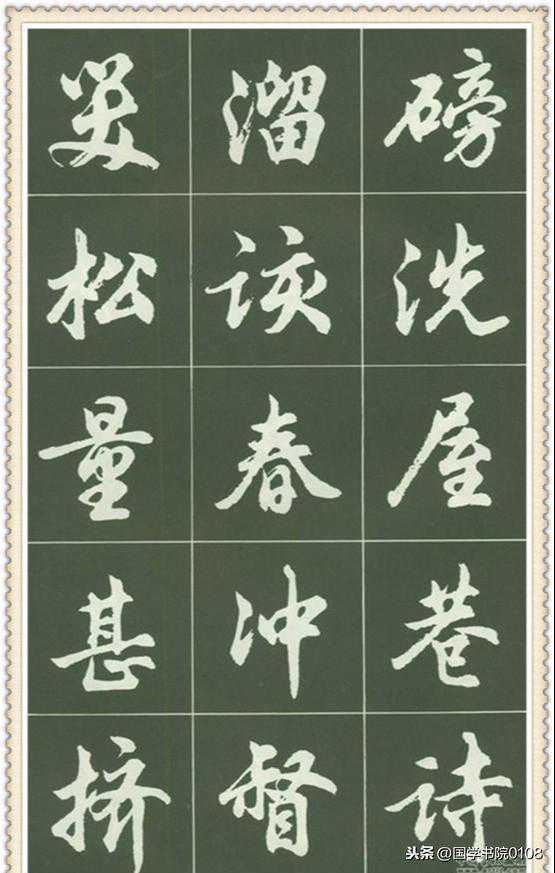 磅洗屋巷诗
溜该春冲督
松量甚挤
头条 @国学书院0108